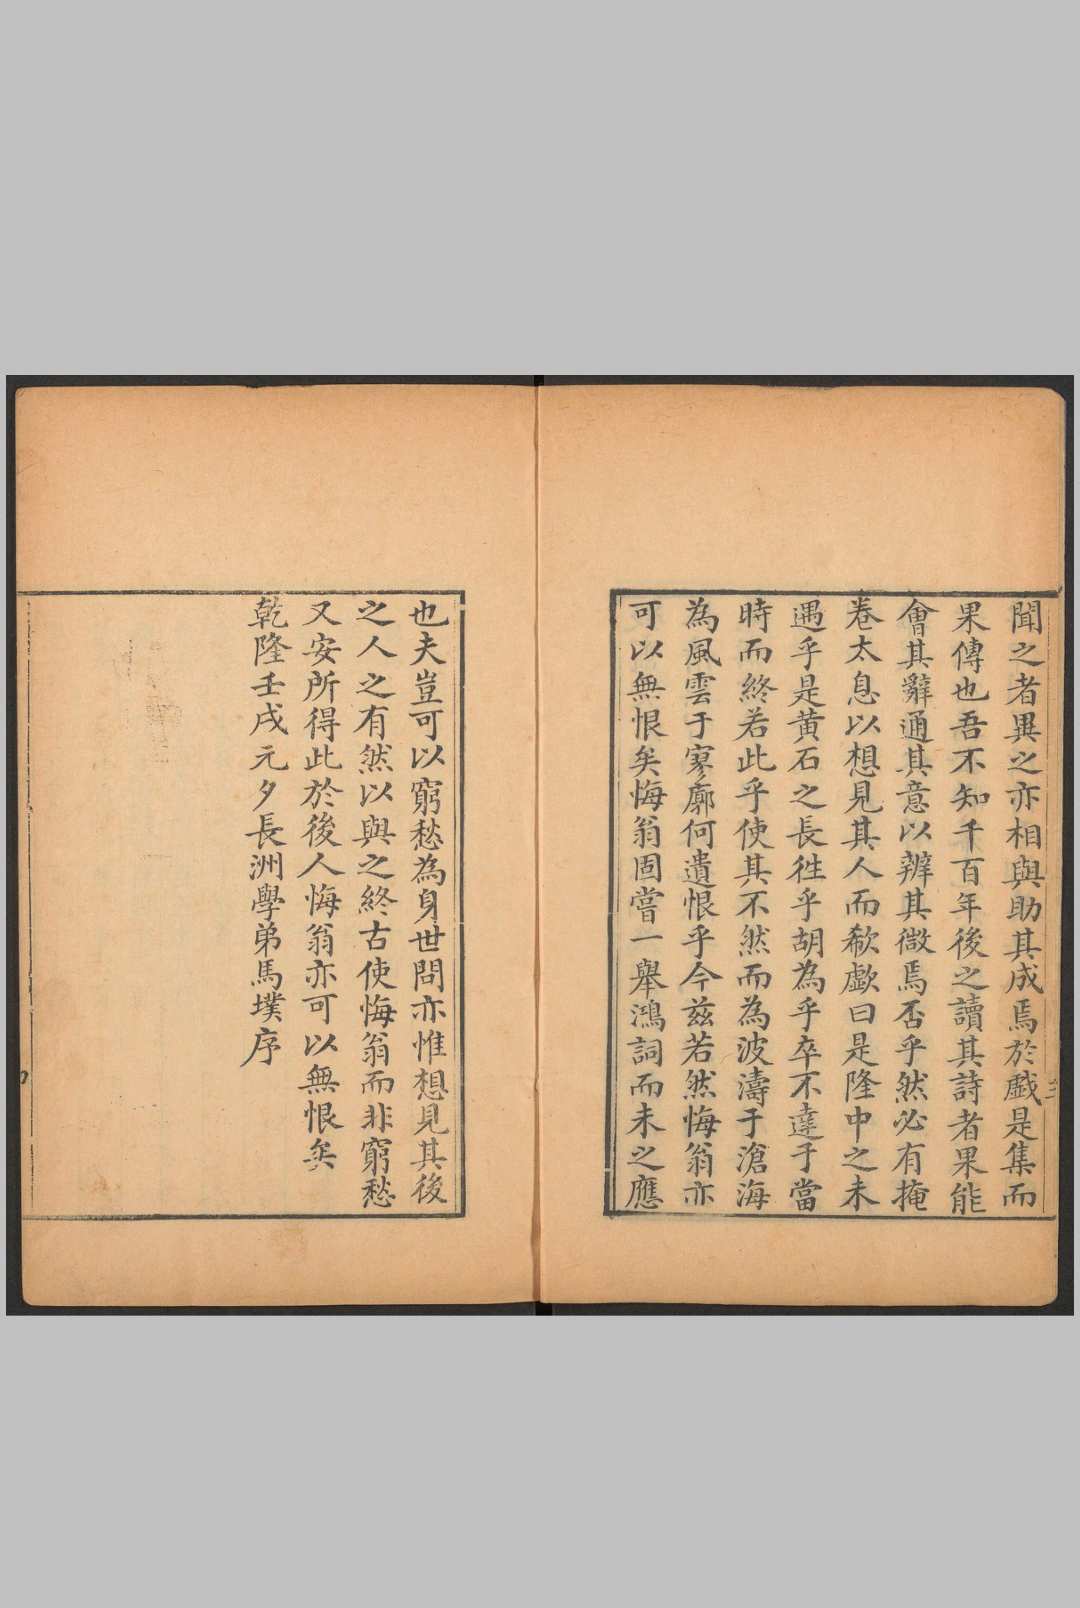 聞之者異之亦相與助其成焉於戲是集而
果傳也吾不知千百年後之讀其詩者果能
會其辭通其意以辨其微焉否乎然必有掩
卷太息以想見其人而欷歔曰是隆中之未
遇乎是黃石之長徃乎胡為乎卒不達于當
時而終若此乎使其不然而為波濤于滄海
為風雲于寥廓何遺恨乎今兹若然悔翁亦
可以無恨矣悔翁固嘗一舉鴻詞而未之應
也夫豈可以窮愁為身世問亦惟想見其後
之人之有然以與之終古使悔翁而非窮愁
又安所得此於後人悔翁亦可以無恨矣
乾隆壬戌元夕長洲學弟馬墣序